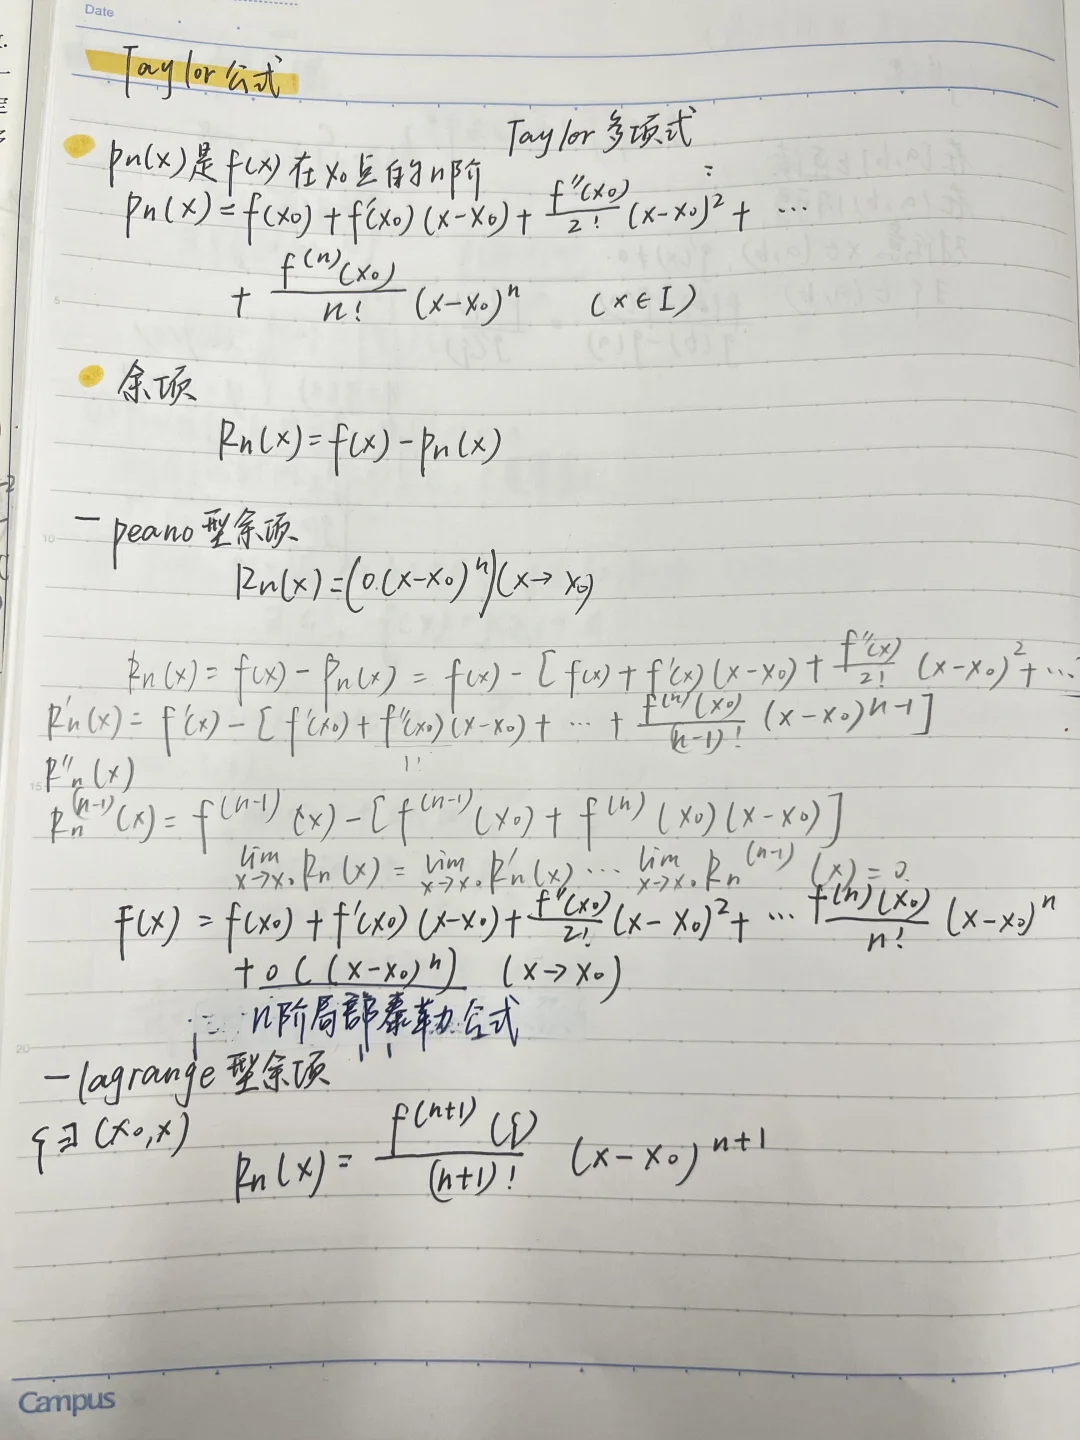 Date
Taylor公式
Taylor多项式
Pn(x)是f(x)在x₀点的n阶
Pn(x)=f(x₀)+f'(x₀)(x-x₀)+f''(x₀)/2!(x-x₀)²+…
+f⁽ⁿ⁾(x₀)/n!(x-x₀)ⁿ (x∈I)
5
余项
Rn(x)=f(x)-pn(x)
-peano型余项
10
Rn(x)=(o(x-x₀)ⁿ)(x→x₀)
Rn(x)=f(x)-Pn(x)=f(x)-[f(x)+f'(x)(x-x₀)+f''(x)/2!(x-x₀)²+…
R'n(x)=f'(x)-[f'(x₀)+f''(x₀)(x-x₀)/1!+…+f⁽ⁿ⁾(x₀)/(n-1)!(x-x₀)n-1]
R''n(x)
15
Rn⁽ⁿ⁻¹⁾(x)=f⁽ⁿ⁻¹⁾(x)-[f⁽ⁿ⁻¹⁾(x₀)+f⁽ⁿ⁾(x₀)(x-x₀)]
lim x→x₀ Rn(x)=lim x→x₀ R'n(x)…lim x→x₀ Rn⁽ⁿ⁻¹⁾(x)=0.
f(x)=f(x₀)+f'(x₀)(x-x₀)+f''(x₀)/2!(x-x₀)²+…f⁽ⁿ⁾(x₀)/n!(x-x₀)ⁿ
+o((x-x₀)ⁿ) (x→x₀)
n阶局部泰勒公式
20
-lagrange型余项
ξ∃(x₀,x)
Rn(x)=f⁽ⁿ⁺¹⁾(ξ)/(n+1)!(x-x₀)ⁿ⁺¹
Campus